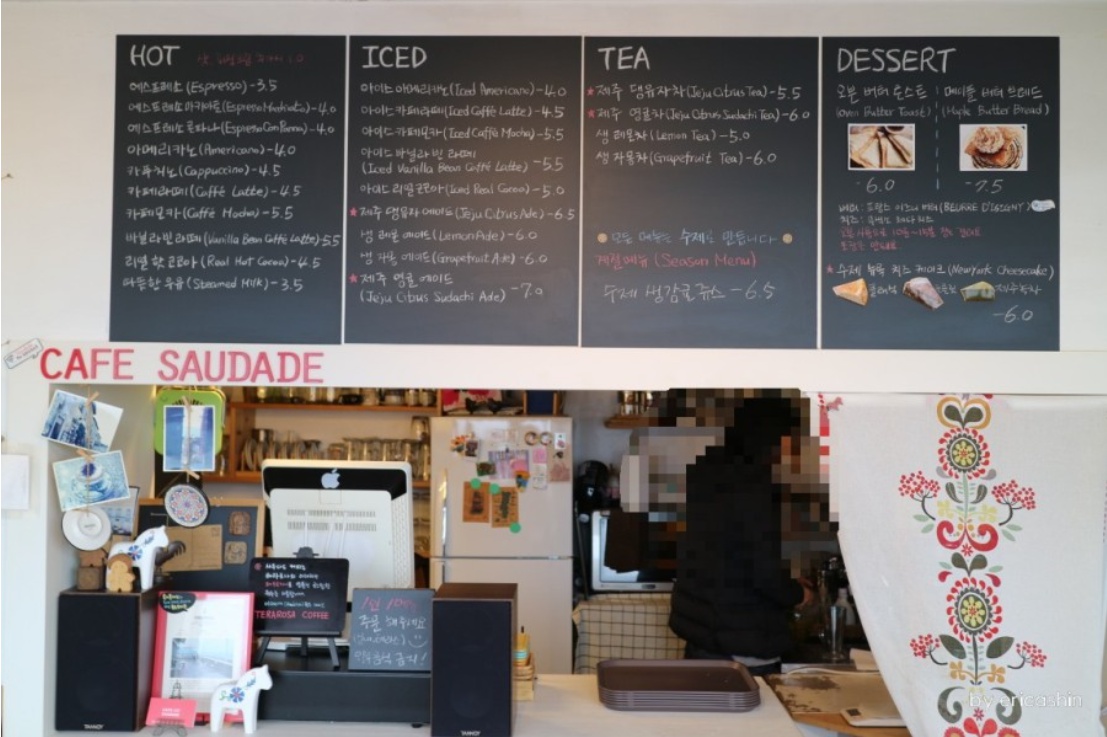 HOT
에스프레소 (Espresso) - 3.5
에스프레소 마키아또 (Espresso Macchiato) - 4.0
에스프레소 콘파나 (Espresso Con Panna) - 4.0
아메리카노 (Americano) - 4.0
카푸치노 (Cappuccino) - 4.5
카페라떼 (Caffé Latte) - 4.5
카페모카 (Caffé Mocha) - 5.5
바닐라빈 라떼 (Vanilla Bean Caffé Latte) - 5.5
리얼 핫 코코아 (Real Hot Cocoa) - 4.5
따듯한 우유 (Steamed Milk) - 3.5
ICED
아이스아메리카노 (Iced Americano) - 4.0
아이스카페라떼 (Iced Caffé Latte) - 4.5
아이스카페모카 (Iced Caffé Mocha) - 5.5
아이스 바닐라 빈 라떼
(Iced Vanilla Bean Caffé Latte) - 5.5
아이스 리얼코코아 (Iced Real Cocoa) - 5.0
★제주 댕유자 에이드 (Jeju Citrus Ade) - 6.5
생 레몬 에이드 (Lemon Ade) - 6.0
생 자몽 에이드 (Grapefruit Ade) - 6.0
★제주 영귤 에이드
(Jeju Citrus Sudachi Ade) - 7.0
TEA
★제주 댕유자차 (Jeju Citrus Tea) - 5.5
★제주 영귤차 (Jeju Citrus Sudachi Tea) - 6.0
생 레몬차 (Lemon Tea) - 5.0
생 자몽차 (Grapefruit Tea) - 6.0
모든 메뉴는 수제로 만듭니다
계절메뉴 (Season Menu)
수제 생감귤쥬스 - 6.5
DESSERT
오븐 버터 토스트 메이플 버터 브레드
(Oven Butter Toast) (Maple Butter Bread)
- 6.0 - 7.5
버터 : 프랑스 이즈니 버터 (BEURRE D'ISIGNY)
★수제 뉴욕 치즈 케이크 (NewYork Cheesecake)
클래식
- 6.0
CAFE SAUDADE
TERAROSA COFFEE
1인 1메뉴
주문해주세요
TANNOY
TANNOY
by ericashin